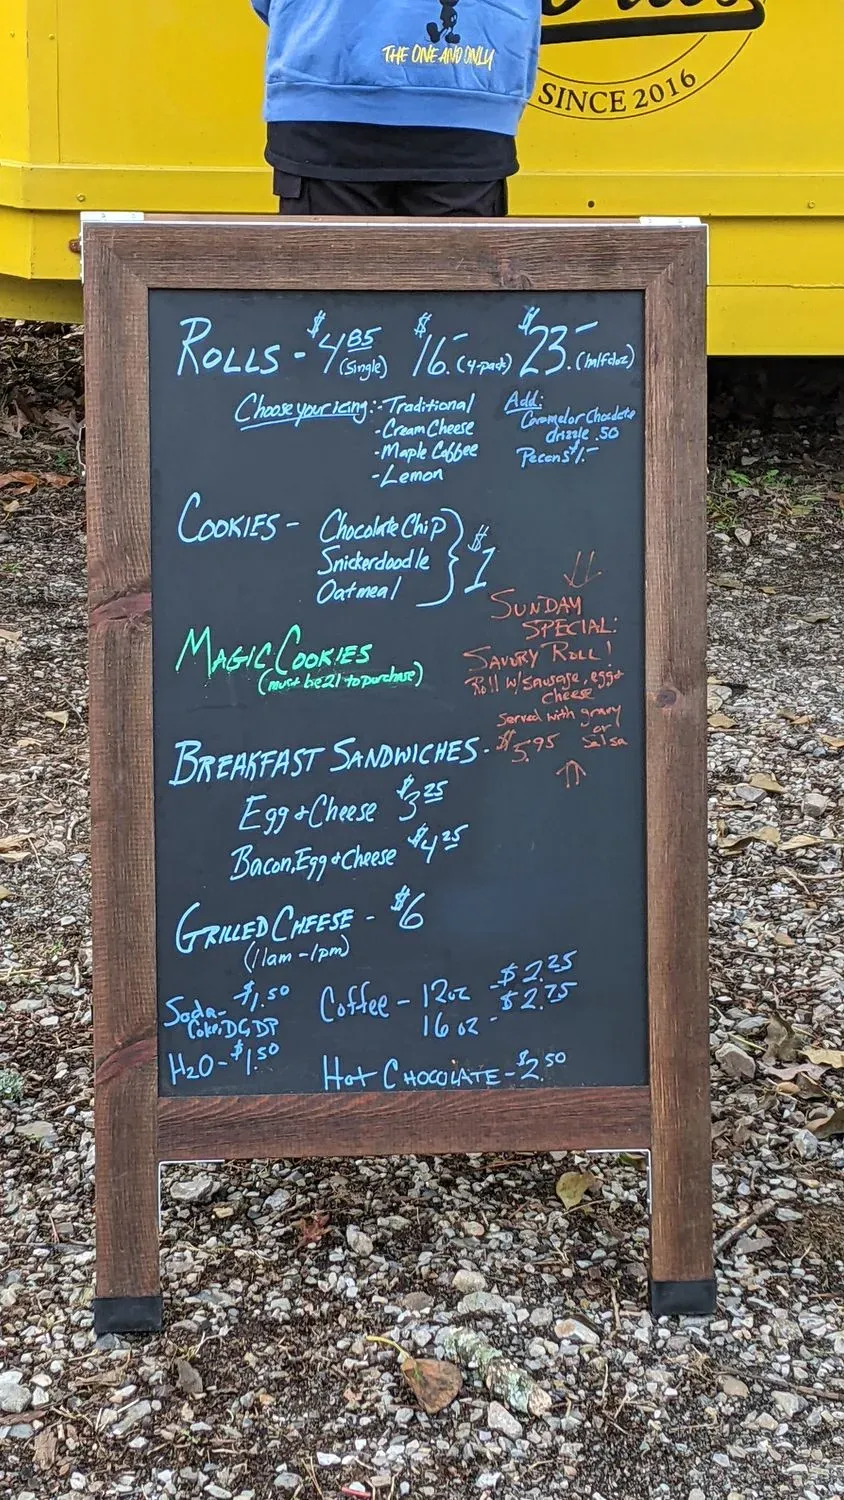 THE ONE AND ONLY
SINCE 2016
ROLLS - $4.85 (single) $16.- (4-pack) $23.- (half doz)
Choose your icing: - Traditional
- Cream Cheese
- Maple Coffee
- Lemon
Add:
Caramel or Chocolate
drizzle .50
Pecans $1.-
COOKIES - Chocolate Chip
Snickerdoodle
Oatmeal
$1
SUNDAY
SPECIAL:
SAVORY ROLL!
Roll w/ sausage, egg +
cheese
served with gravy
or
$5.95 salsa
MAGIC COOKIES
(must be 21 to purchase)
BREAKFAST SANDWICHES -
Egg + Cheese $3.25
Bacon, Egg + Cheese $4.25
GRILLED CHEESE - $6
(11am - 1pm)
Soda - $1.50
Coke, DC, DP
H2O - $1.50
Coffee - 12oz - $2.25
16 oz - $2.75
Hot CHOCOLATE - $2.50